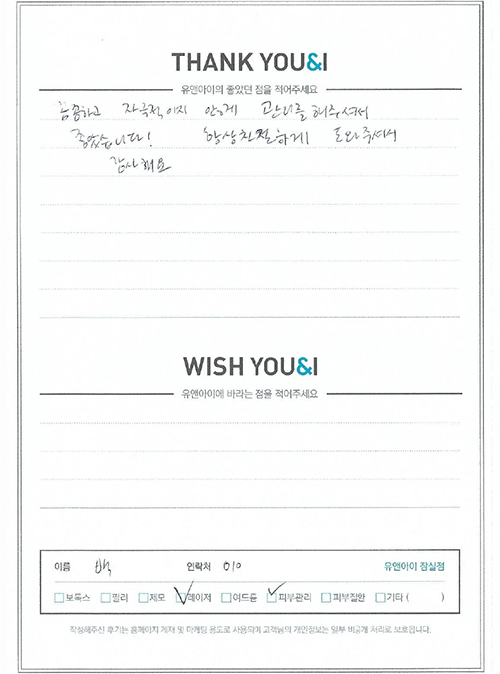 THANK YOU&I
유앤아이의 좋았던 점을 적어주세요
꼼꼼하고 자극적이지 않게 관리를 해주셔서
좋았습니다! 항상 친절하게 도와주셔서
감사해요
WISH YOU&I
유앤아이에 바라는 점을 적어주세요
이름 백 연락처 010 유앤아이 잠실점
보톡스 필러 제모 레이저 여드름 피부관리 피부질환 기타 ( )
작성해주신 후기는 홈페이지 게재 및 마케팅 용도로 사용되며 고객님의 개인정보는 일부 비공개 처리로 보호됩니다.